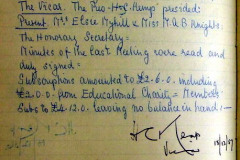 The Vicar. The Rev. Hof. Kemp presided:
Present. Mrs Elsie Myhill & Miss M.A.B. Knights:
The Honorary Secretary =
Minutes of the last Meeting were read and
duly signed =
Subscriptions amounted to £2.6.0. including
£2.0.0. from Educational Charity = Members
Subs to £4.12.0. leaving no balance in hand: